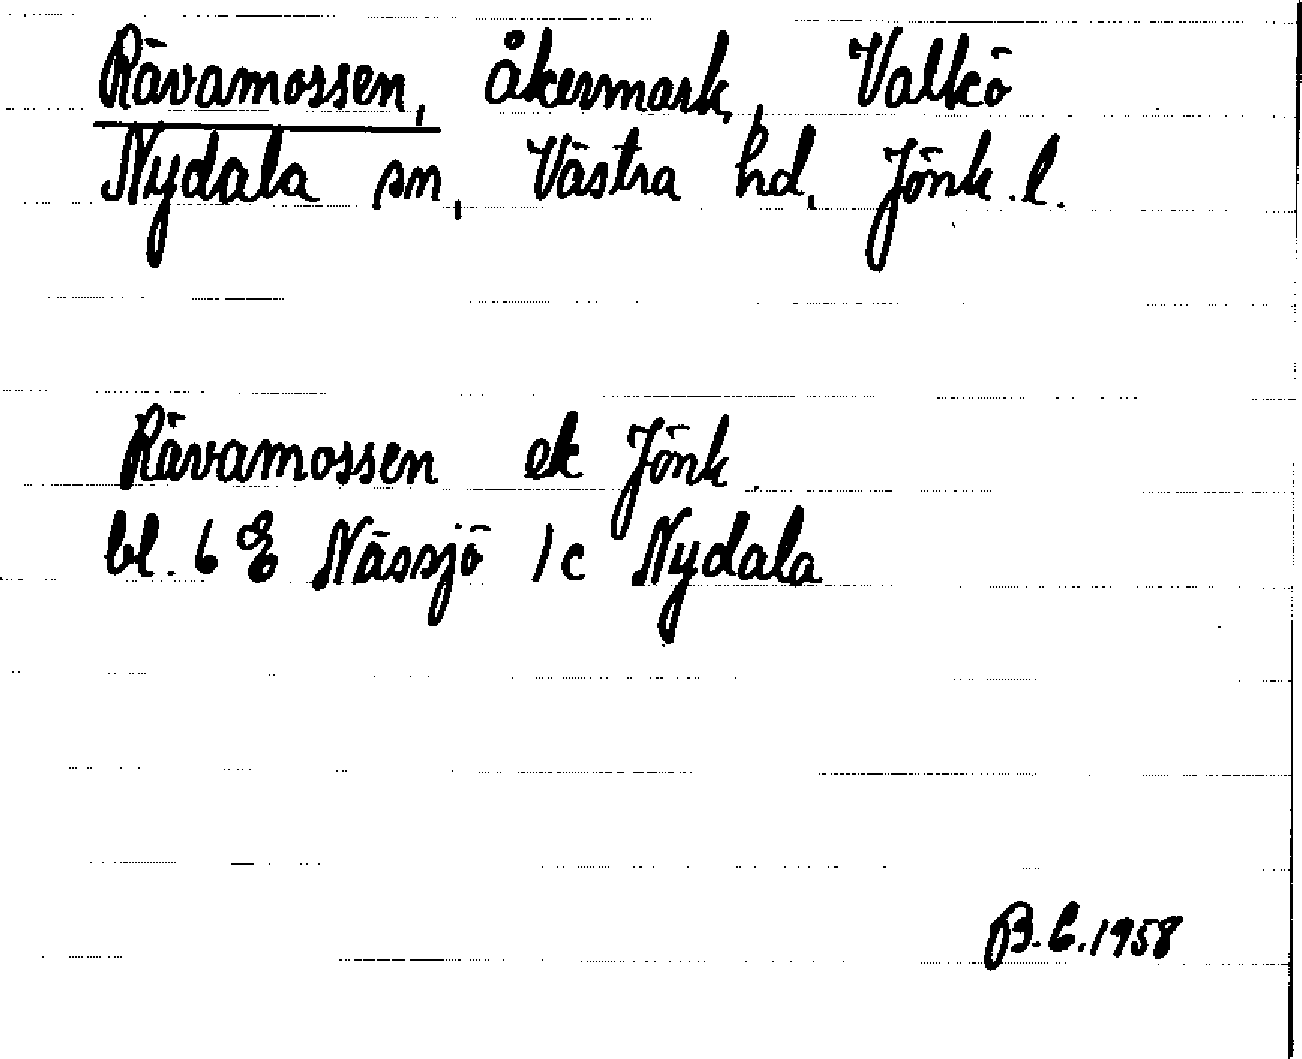 Rävamossen, åkermark, Valkö
Nydala sn, Västra hd, Jönk.l.
Rävamossen ek Jönk.
bl. 6 E Nässjö 1c Nydala
B.E.1958